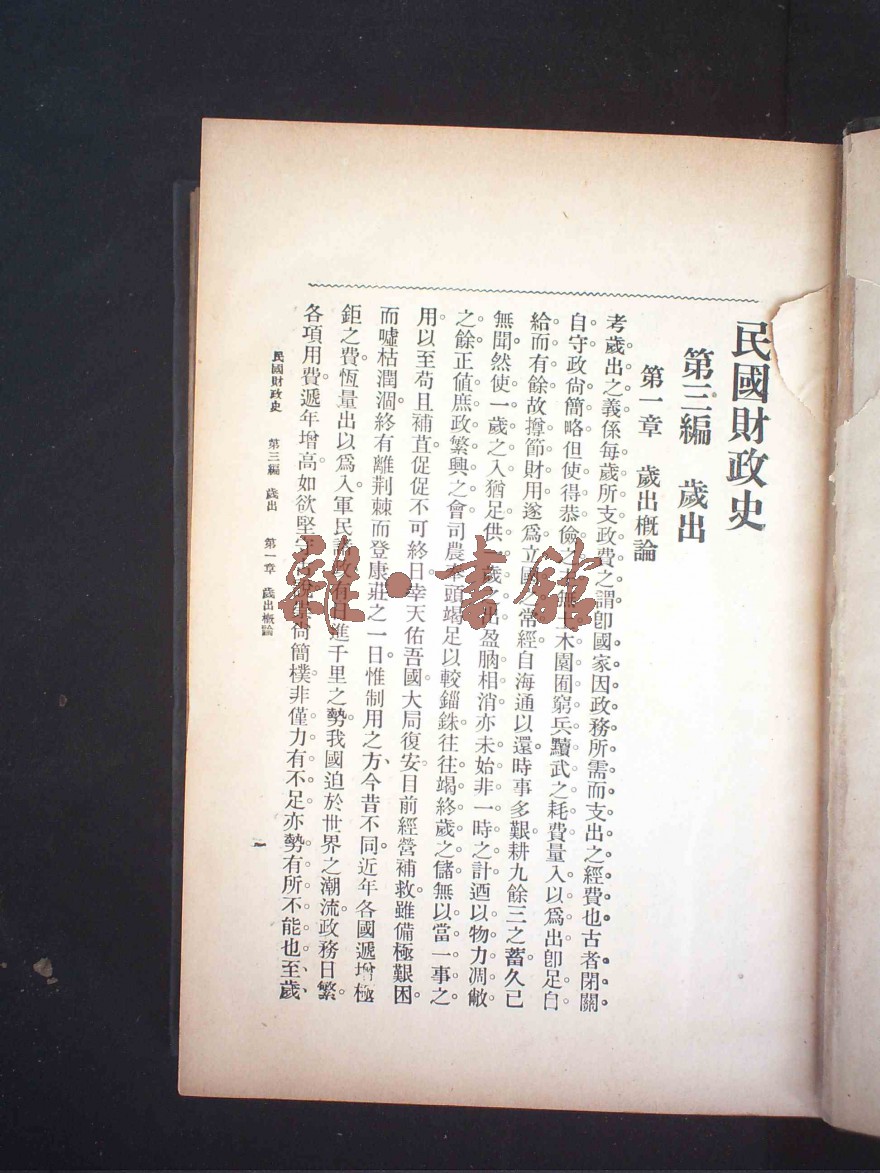 民國財政史
第三編 歲出
第一章 歲出概論
考歲出之義係每歲所支政費之謂卽國家因政務所需而支出之經費也古者閉關
自守政尙簡略但使得恭儉之無土木園囿窮兵黷武之耗費量入以爲出卽足自
給而有餘故撙節財用遂爲立國之常經自海通以還時事多艱耕九餘三之蓄久已
無聞然使一歲之入猶足供一歲之出盈朒相消亦未始非一時之計迺以物力凋敝
之餘正値庶政繁興之會司農本頭竭足以較錙銖往往竭終歲之儲無以當一事之
用以至苟且補苴促促不可終日幸天佑吾國大局復安目前經營補救雖備極艱困
而噓枯潤涸終有離荆棘而登康莊之一日惟制用之方今昔不同近年各國遞增極
鉅之費恆量出以爲入軍民政有日進千里之勢我國迫於世界之潮流政務日繁
各項用費遞年增高如欲堅尙簡樸非僅力有不足亦勢有所不能也至歲
民國財政史 第三編 歲出 第一章 歲出概論
一
雜·書館